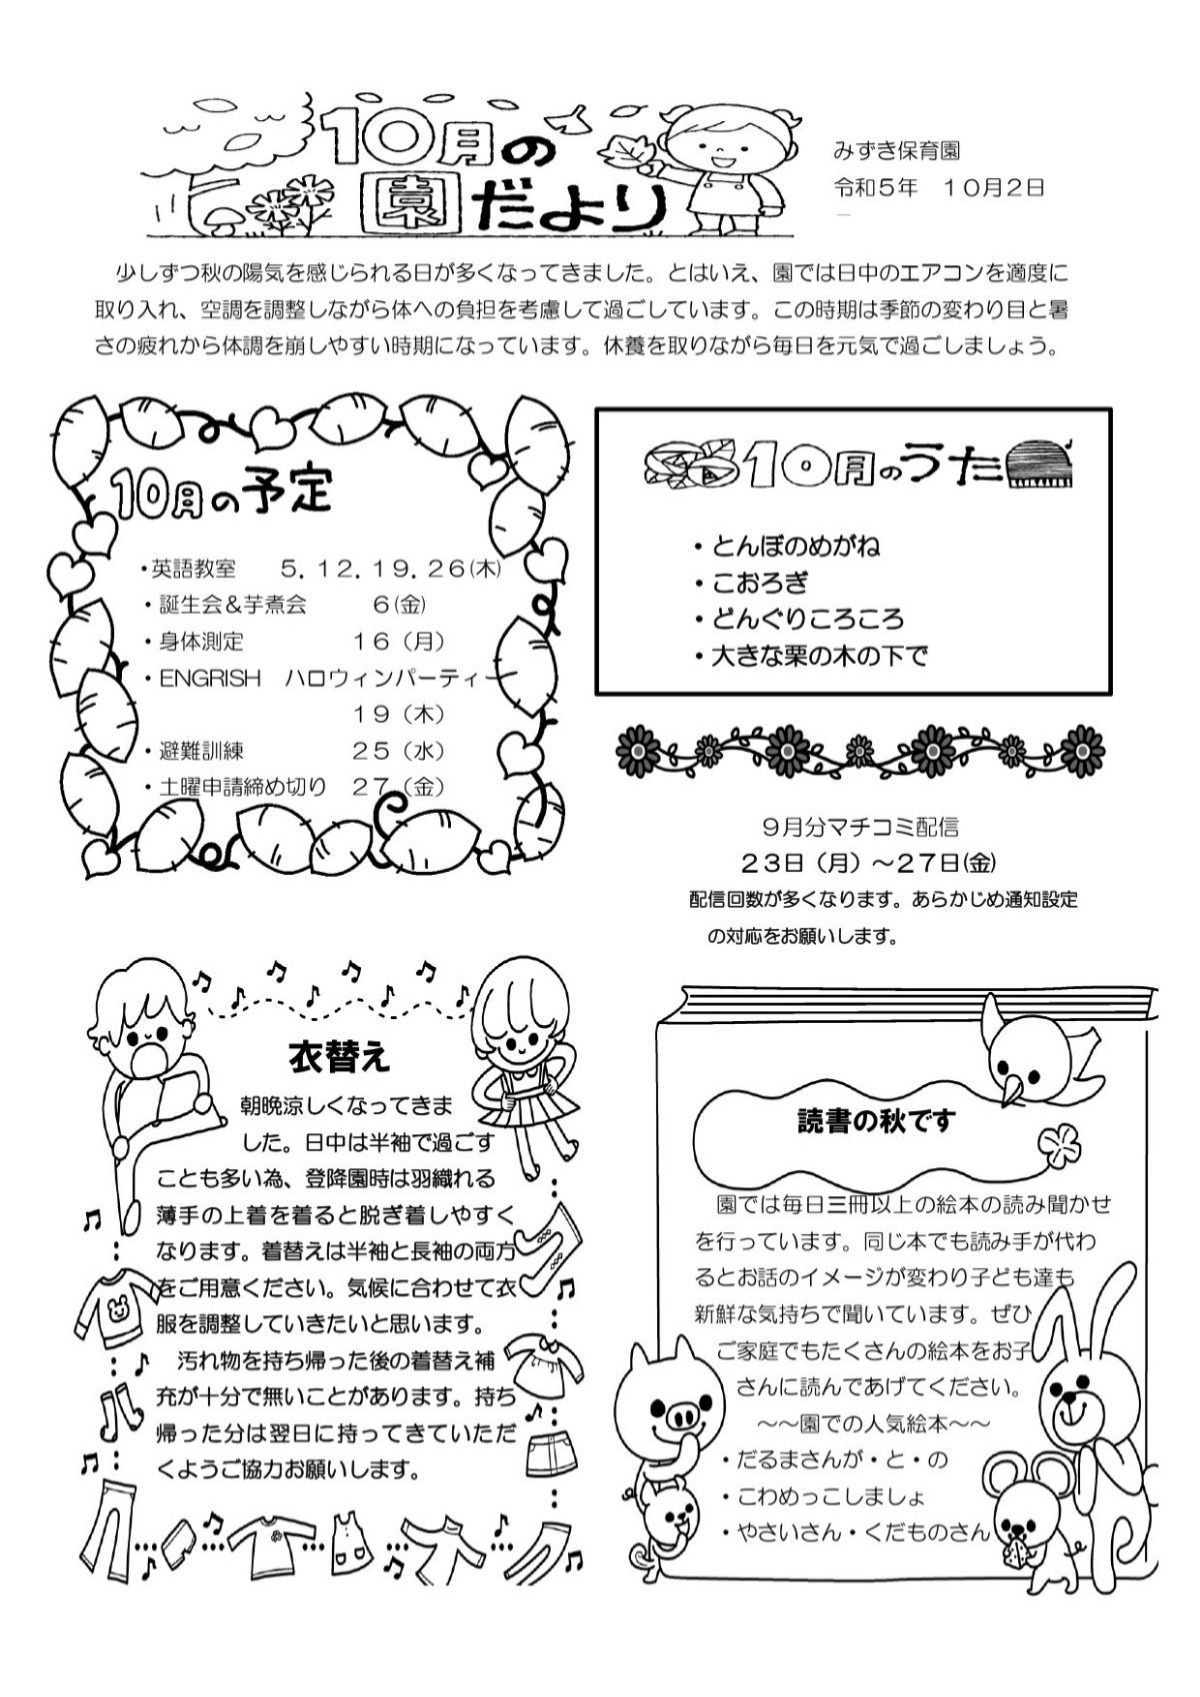 10月の
園だより
みずき保育園
令和5年　10月2日
少しずつ秋の陽気を感じられる日が多くなってきました。とはいえ、園では日中のエアコンを適度に
取り入れ、空調を調整しながら体への負担を考慮して過ごしています。この時期は季節の変わり目と暑
さの疲れから体調を崩しやすい時期になっています。休養を取りながら毎日を元気で過ごしましょう。
10月の予定
・英語教室　5．12．19．26(木)
・誕生会＆芋煮会　6(金)
・身体測定　16（月）
・ENGRISH　ハロウィンパーティー
19（木）
・避難訓練　25（水）
・土曜申請締め切り　27（金）
10月のうた
・とんぼのめがね
・こおろぎ
・どんぐりころころ
・大きな栗の木の下で
9月分マチコミ配信
23日（月）～27日(金)
配信回数が多くなります。あらかじめ通知設定
の対応をお願いします。
衣替え
朝晩涼しくなってきま
した。日中は半袖で過ごす
ことも多い為、登降園時は羽織れる
薄手の上着を着ると脱ぎ着しやすく
なります。着替えは半袖と長袖の両方
をご用意ください。気候に合わせて衣
服を調整していきたいと思います。
汚れ物を持ち帰った後の着替え補
充が十分で無いことがあります。持ち
帰った分は翌日に持ってきていただ
くようご協力お願いします。
読書の秋です
園では毎日三冊以上の絵本の読み聞かせ
を行っています。同じ本でも読み手が代わ
るとお話のイメージが変わり子ども達も
新鮮な気持ちで聞いています。ぜひ
ご家庭でもたくさんの絵本をお子
さんに読んであげてください。
～～園での人気絵本～～
・だるまさんが・と・の
・こわめっこしましょ
・やさいさん・くだものさん